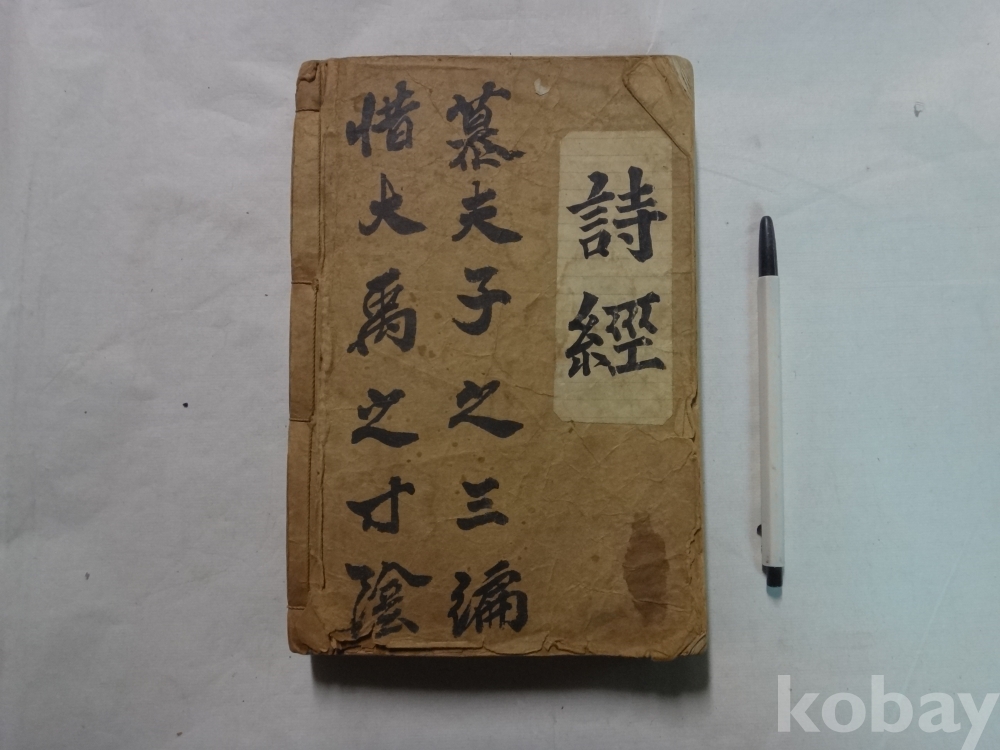 詩經
慕夫子之三編
惜大禹之寸陰
kobay